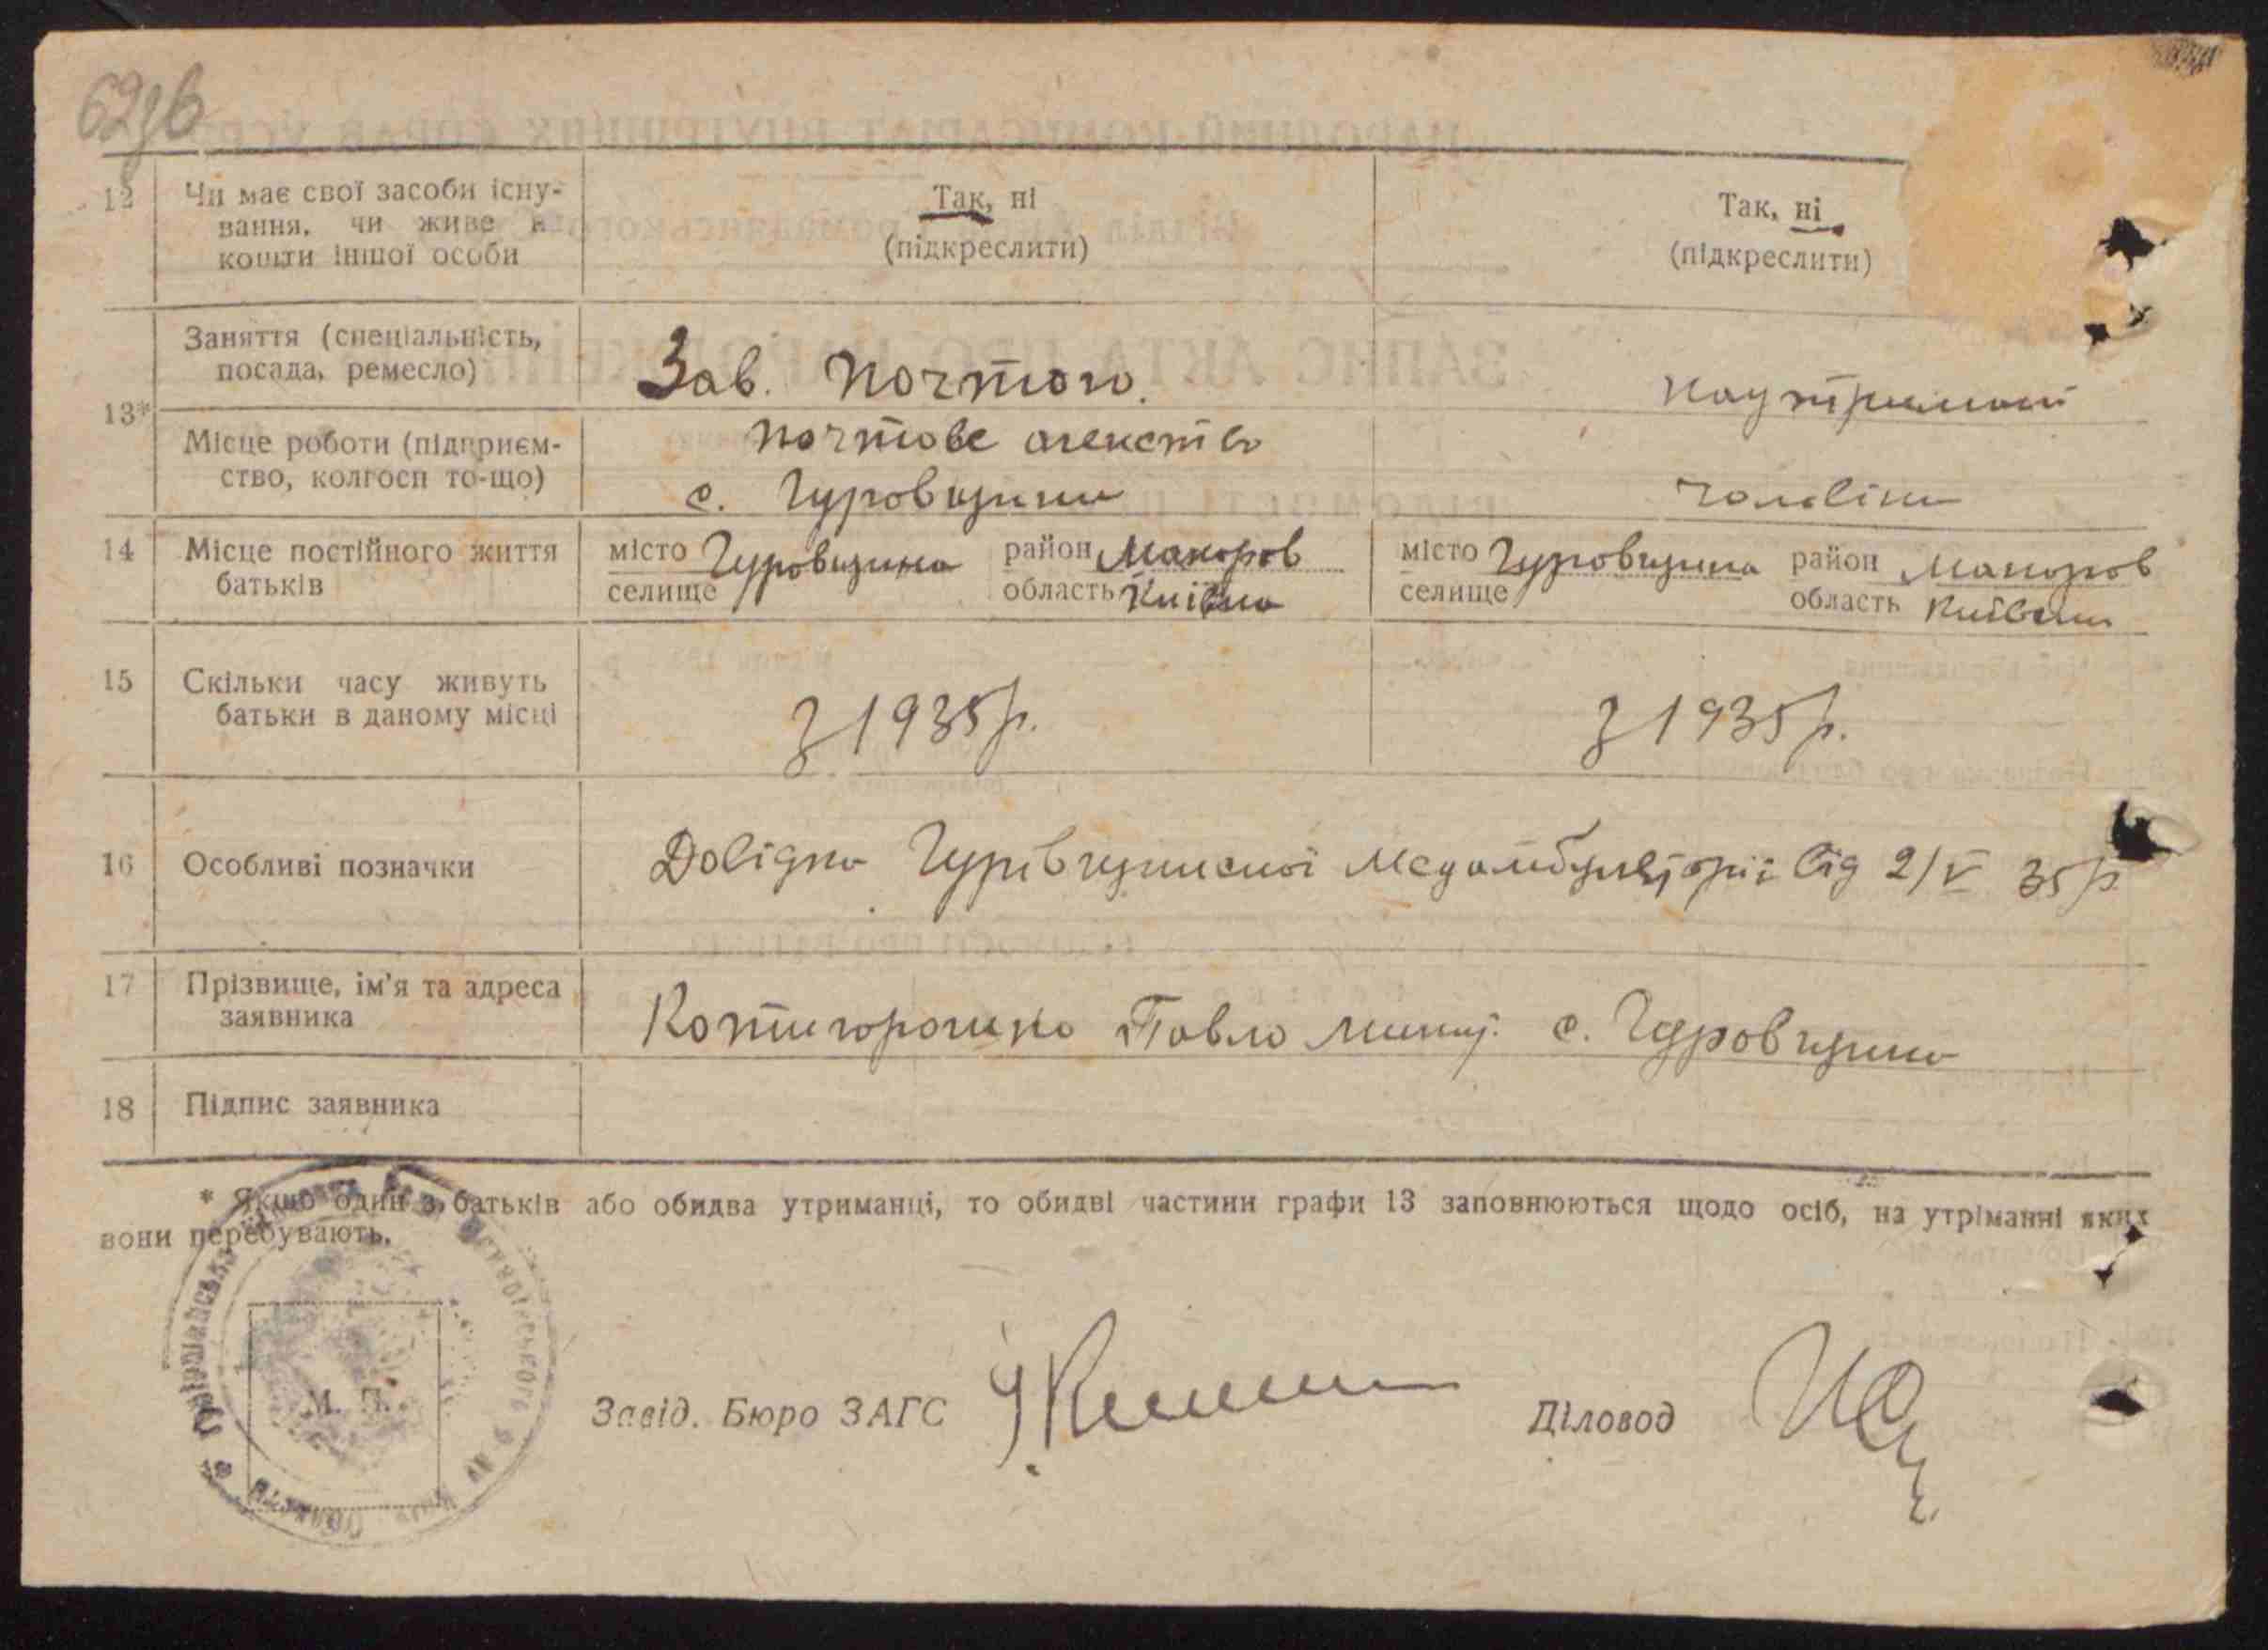 62зв
12 Чи має свої засоби існу-
вання, чи живе на
кошти іншої особи
Так, ні
(підкреслити)
Так, ні
(підкреслити)
13*
Заняття (спеціальність,
посада, ремесло)
Зав. Почтою.
на утриманні
Місце роботи (підприєм-
ство, колгосп то-що)
почтове агенство
с. Гуровщина
чоловіка
14 Місце постійного життя
батьків
місто Гуровщина район Макаров
селище область Київська
місто Гуровщина район Макаров
селище область Київська
15 Скільки часу живуть
батьки в даному місці
з 1935 р.
з 1935 р.
16 Особливі позначки
Довідка Гурівщинської Медамбуляторії від 2/V 35 р
17 Прізвище, ім'я та адреса
заявника
Котигорошко Павло с. Гуровщина
18 Підпис заявника
* Якщо один з батьків або обидва утриманці, то обидві частини графи 13 заповнюються щодо осіб, на утріманні яких
вони перебувають.
М. П.
Завід. Бюро ЗАГС
Діловод